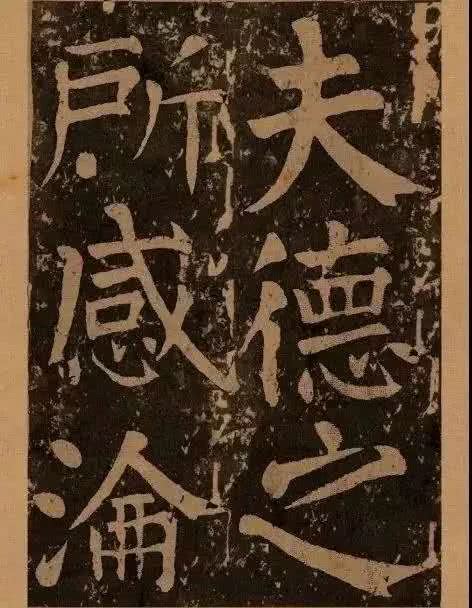 夫德之
所感淪